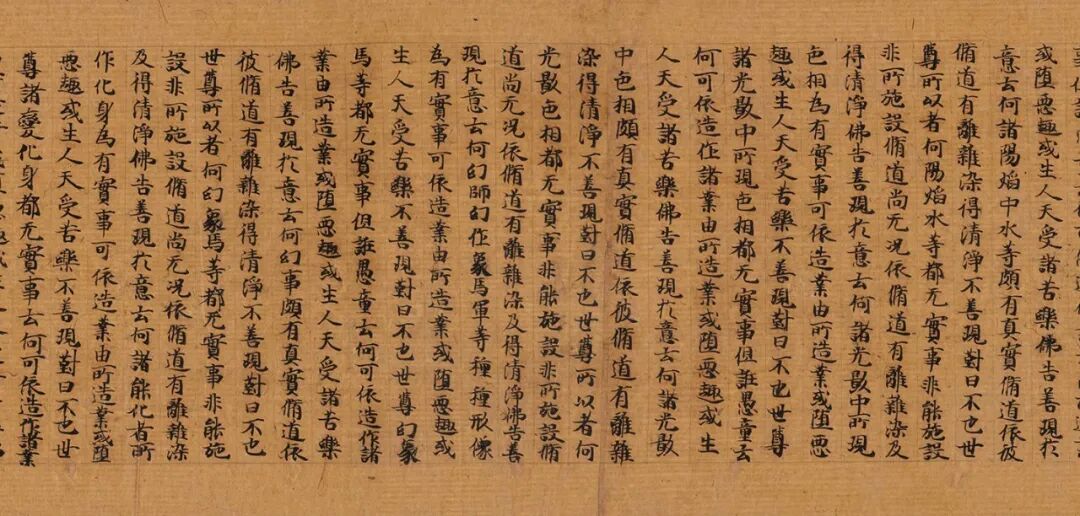 或墮惡趣或生人天受諸苦樂佛告善現於
意云何諸陽焰中水等頗有真實脩道依彼
脩道有離雜染得清淨不善現對曰不也世
尊所以者何陽焰水等都无實事非能施設
非所施設脩道尚无况依脩道有離雜染及
得清淨佛告善現於意云何諸光影中所現
色相為有實事可依造業由所造業或墮惡
趣或生人天受苦樂不善現對曰不也世尊
諸光影中所現色相都无實事但誑愚童云
何可依造作諸業由所造業或墮惡趣或生
人天受諸苦樂佛告善現於意云何諸光影
中色相頗有真實脩道依彼脩道有離雜
染得清淨不善現對曰不也世尊所以者何
光影色相都无實事非能施設非所施設脩
道尚无况依脩道有離雜染及得清淨佛告善
現於意云何幻師幻作象馬軍等種種形像
為有實事可依造業由所造業或墮惡趣或
生人天受苦樂不善現對曰不也世尊幻象
馬等都无實事但誑愚童云何可依造作諸
業由所造業或墮惡趣或生人天受諸苦樂
佛告善現於意云何幻事頗有真實脩道依
彼脩道有離雜染得清淨不善現對曰不也
世尊所以者何幻象馬等都无實事非能施
設非所施設脩道尚无况依脩道有離雜染
及得清淨佛告善現於意云何諸能化者所
作化身為有實事可依造業由所造業或墮
惡趣或生人天受苦樂不善現對曰不也世
尊諸變化身都无實事云何可依造作諸業